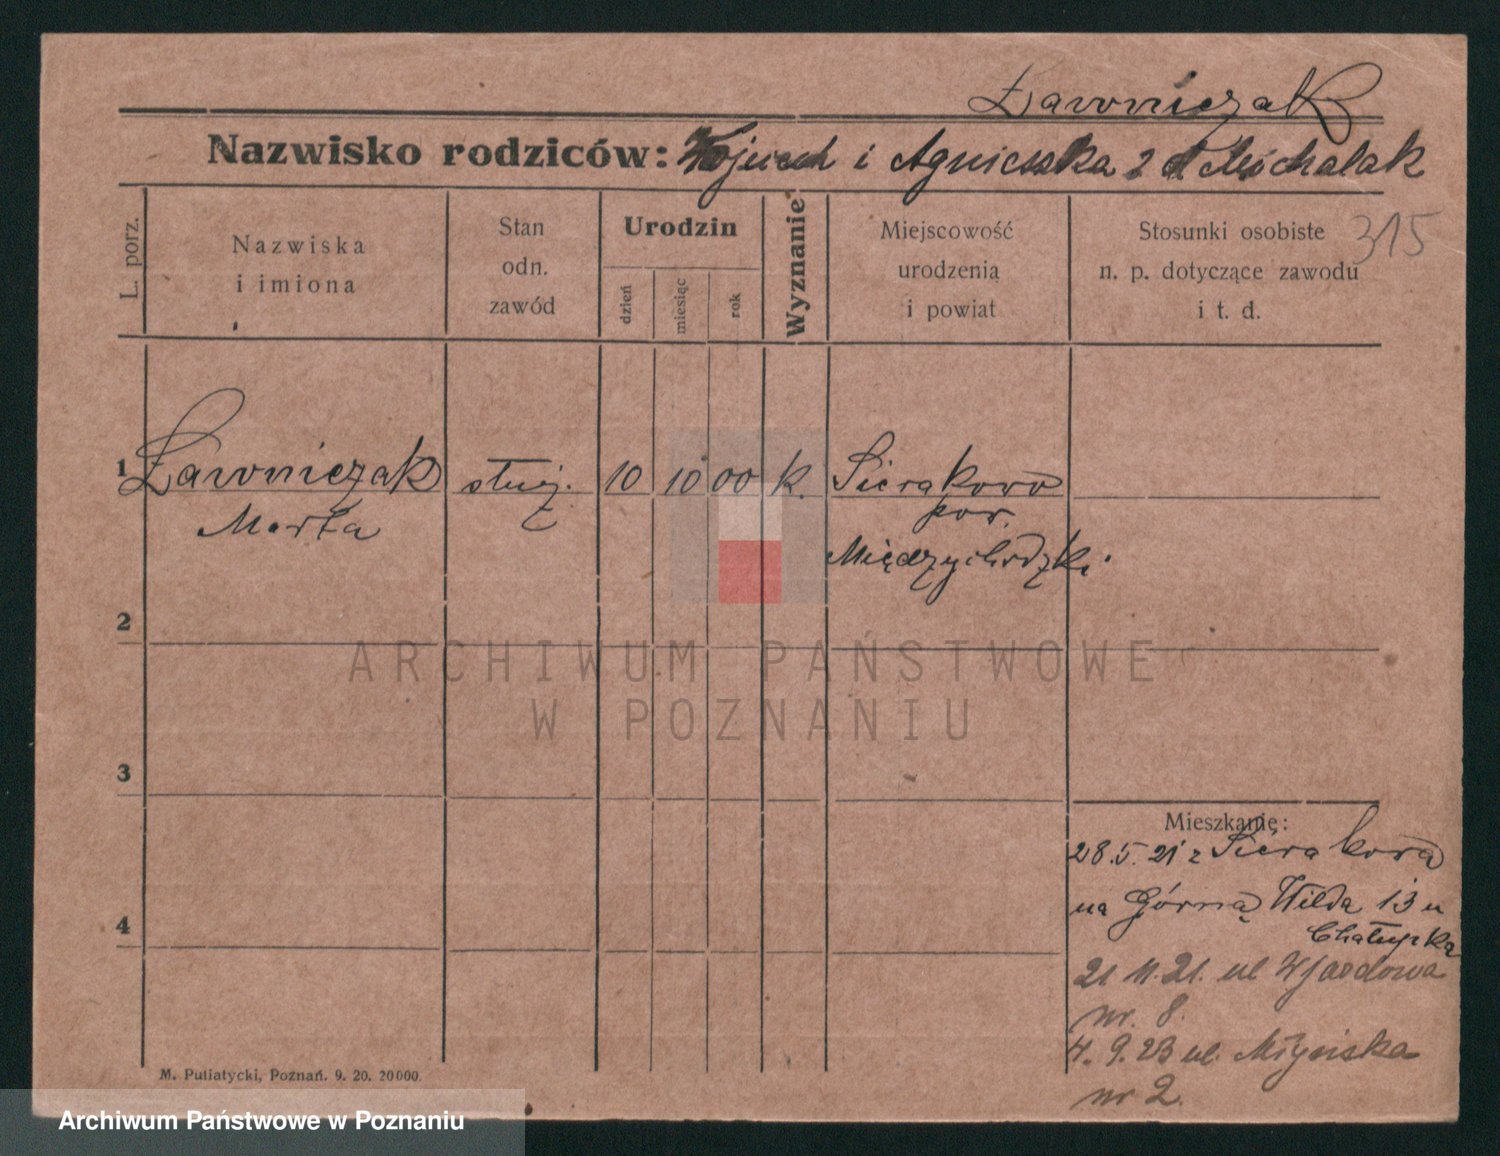 Ławniczak
Nazwisko rodziców: Wojciech i Agnieszka z d Michalak
315
L. porz.
Nazwiska
i imiona
Stan
odn.
zawód
Urodzin
dzień
miesiąc
rok
Wyznanie
Miejscowość
urodzenia
i powiat
Stosunki osobiste
n. p. dotyczące zawodu
i t. d.
1 Ławniczak służ. 10 10 00 k. Sierakowo
Marta pow.
Międzychodzki.
2
3
4
Mieszkanie:
28.5.21 z Sierakowa
na Górną Wilda 13 u
21 11.21. ul Wjazdowa
nr. 8.
4. 9. 23 ul. Młyńska
nr 2.
M. Putiatycki, Poznań. 9. 20. 20000.
ARCHIWUM PAŃSTWOWE
W POZNANIU
Archiwum Państwowe w Poznaniu